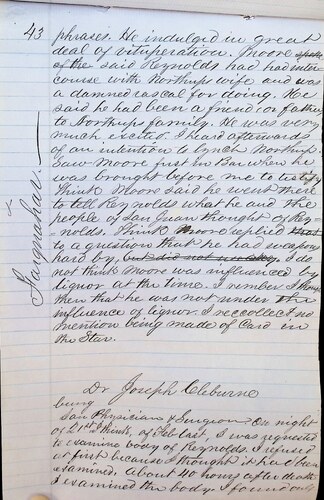 43
phrases. He indulged in great
deal of vituperation. Moore spoke
of the said Reynolds had had inter
course with Northup wife and was
a damned rascal for doing. He
said he had been a friend or father
to Northup family. He was very
much excited. I heard afterwards
of an intention to lynch Northup.
Saw Moore first in Bar when he
was brought before me to testify
Think Moore said he went there
to tell Reynolds what he and the
people of San Juan thought of Rey-
nolds. Think Moore replied that
to a question that he had weapons
hard by, but did not I do
not think Moore was influenced by
liquor at the time. I rember I thought
then that he was not under the
influence of liquor I reccollect no
mention being made of Card in
the Star.
Farquahar.
Dr Joseph Cleburne
being
I am Physician & Surgeon On night
of 21st I think, of Feb last, I was requested
to examine body of Reynolds. I refused
at first because I thought it had been
examined. About 40 hours after death
I examined the body. I found one